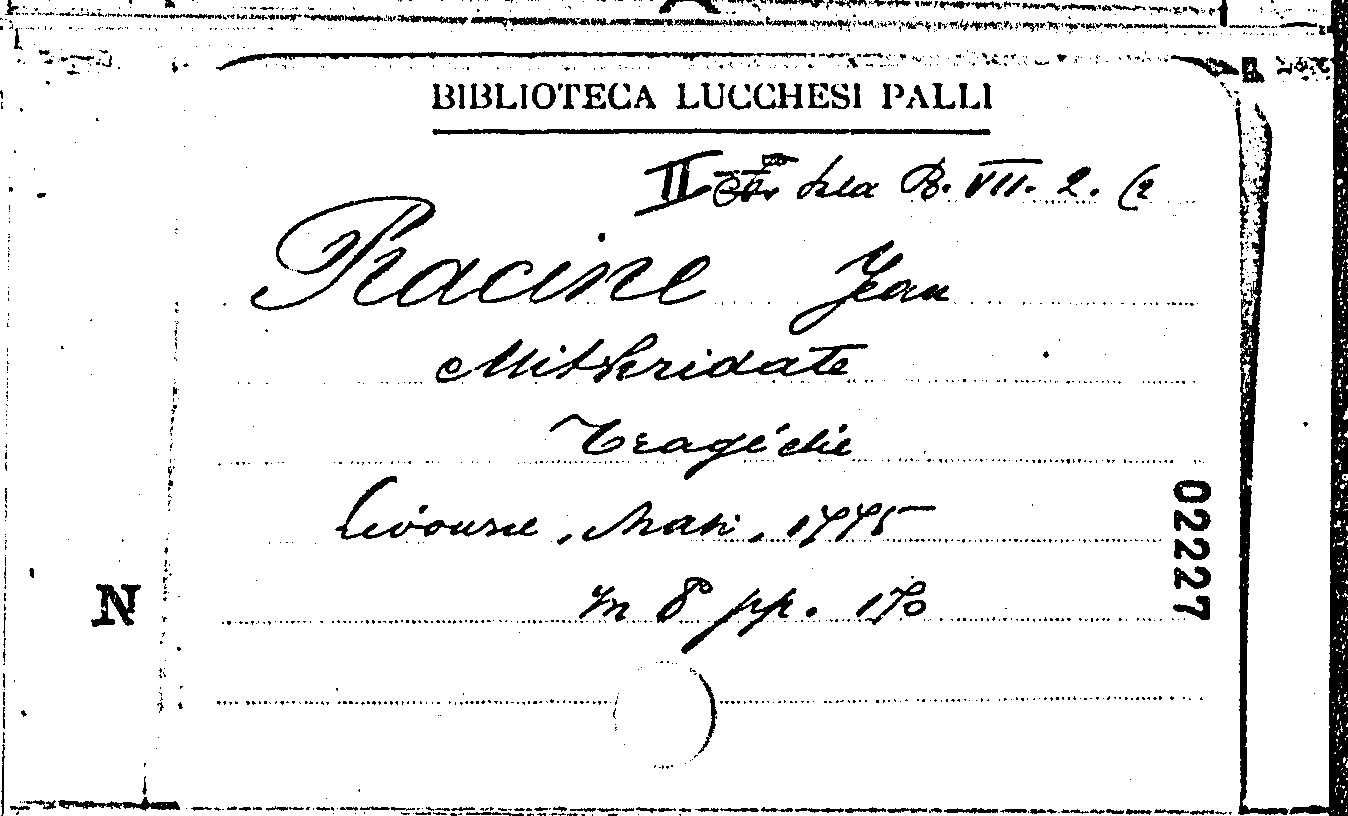 BIBLIOTECA LUCCHESI PALLI
II Sala B. VII. 2. (2
Racine Jean
Mithridate
Tragédie
Livourne, Masi, 1775
02227
in 8° pp. 170
N